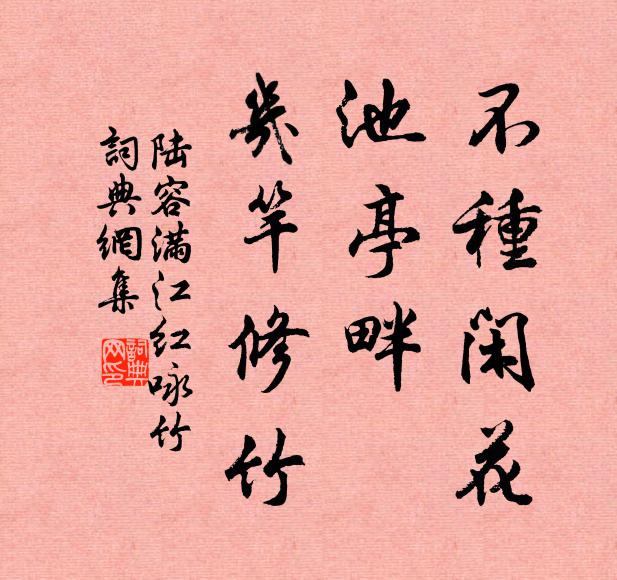 不種閑花
池亭畔
幾竿修竹
陆容满江红咏竹
詞典網集
詞典网印